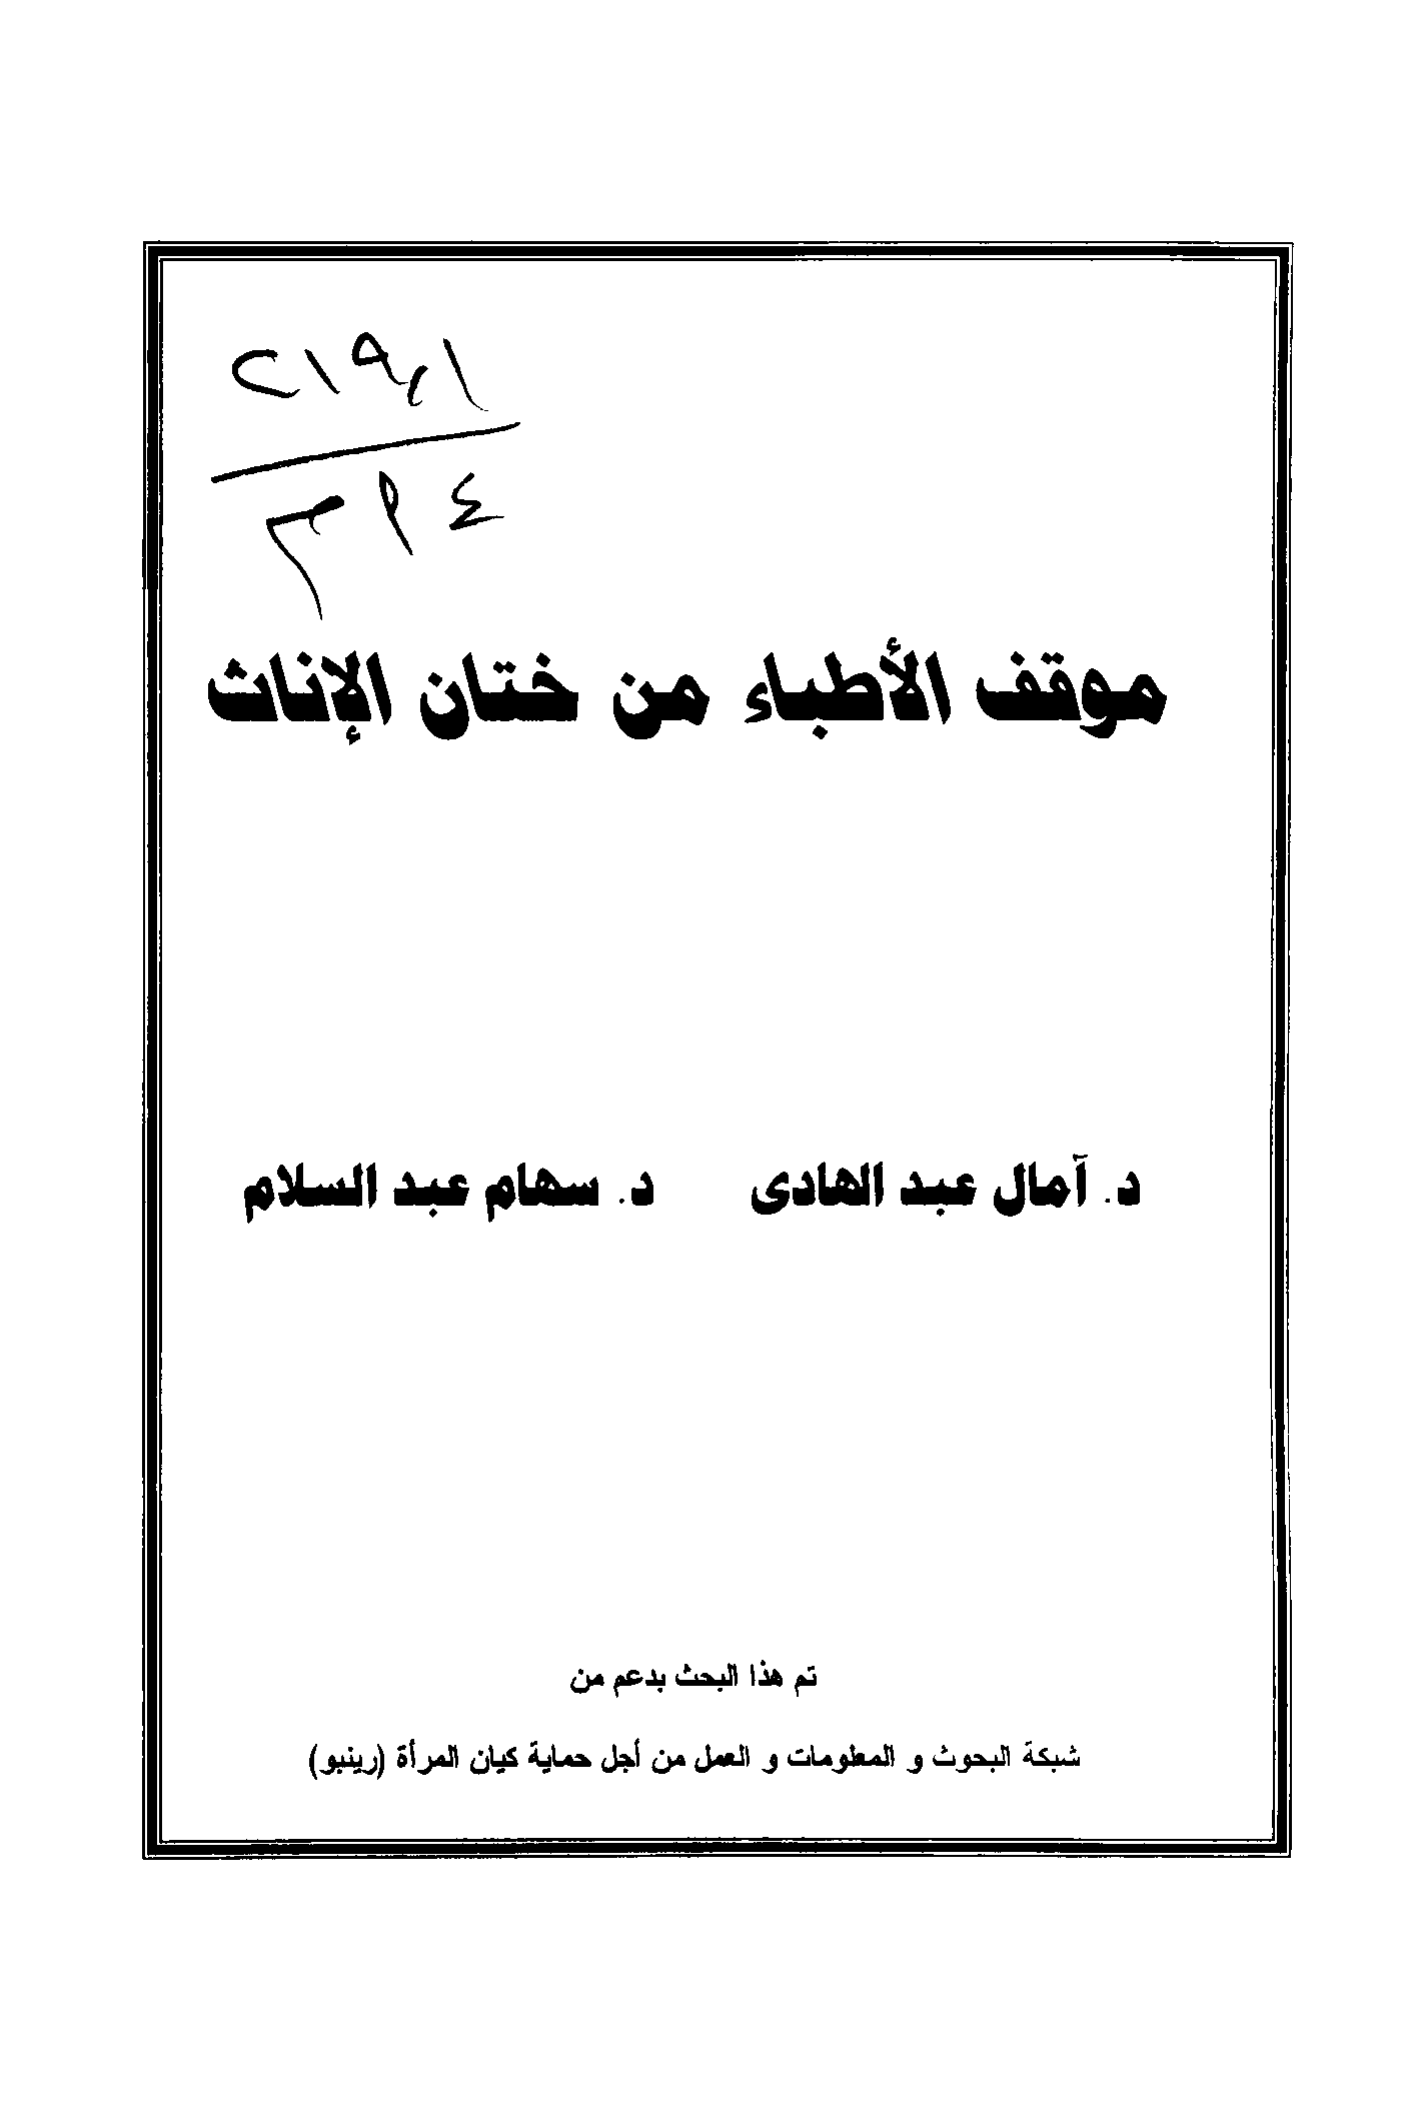 موقف الأطباء من ختان الإناث
د. آمال عبد الهادى د. سهام عبد السلام
تم هذا البحث بدعم من
شبكة البحوث و المعلومات و العمل من أجل حماية كيان المرأة (رينبو)